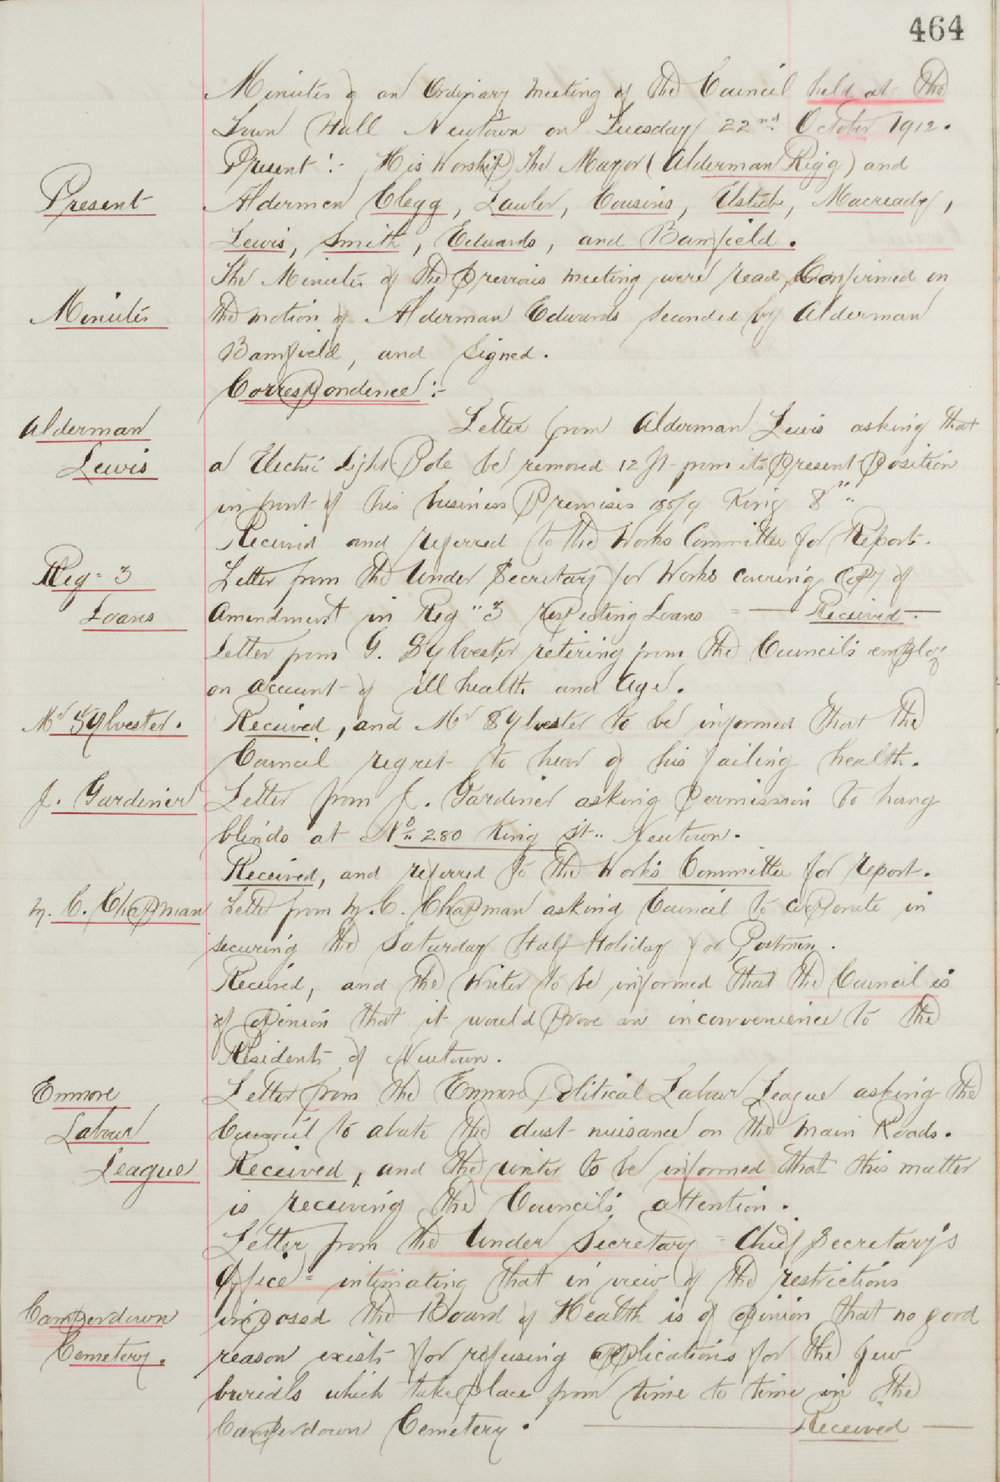 464
Minutes of an Ordinary Meeting of the Council held at the
Town Hall Newtown on Tuesday 22nd October 1912.
Present:- His Worship The Mayor (Alderman Rigg) and
Present
Aldermen Clegg, Lawler, Cousins, Macready,
Lewis, Smith, Edwards, and Bamfield.
The Minutes of the previous meeting were read, Confirmed on
Minutes
the motion of Alderman Edwards seconded by Alderman
Bamfield, and signed.
Correspondence:-
Alderman
Letter from Alderman Lewis asking that
Lewis
a Electric Light Pole be removed 12 ft. from its Present Position
in front of his business Premises King
Received and referred to the Works Committee for Report.
Reg: 3
Letter from the Under Secretary for Works covering Copy of
Loans
Amendment in Reg" 3 respecting Loans — Received —
Letter from G. Sylvester retiring from the Council's employ
on account of ill health and Age.
Mr Sylvester.
Received, and Mr Sylvester to be informed that the
Council regret to hear of his failing health.
J. Gardiner
Letter from J. Gardiner asking permission to hang
blinds at No. 280 King St.. Newtown.
Received, and referred to the Works Committee for report.
C. Chapman
Letter from C. Chapman asking Council to cooporate in
securing the Saturday Half Holiday for Postmen.
Received, and the writer to be informed that the Council is
of opinion that it would prove an inconvenience to the
Residents of Newtown.
Enmore
Letter from the Enmore Political Labour League asking the
Labour
Council to abate the dust nuisance on the main Roads.
League
Received, and the writer to be informed that this matter
is receiving the Council's attention.
Letter from the Under Secretary - Chief Secretary's
Office - intimating that in view of the restrictions
Camperdown
imposed the Board of Health is of opinion that no good
Cemetery.
reason exists for refusing applications for the few
burials which take place from time to time in the
Camperdown Cemetery. — Received —